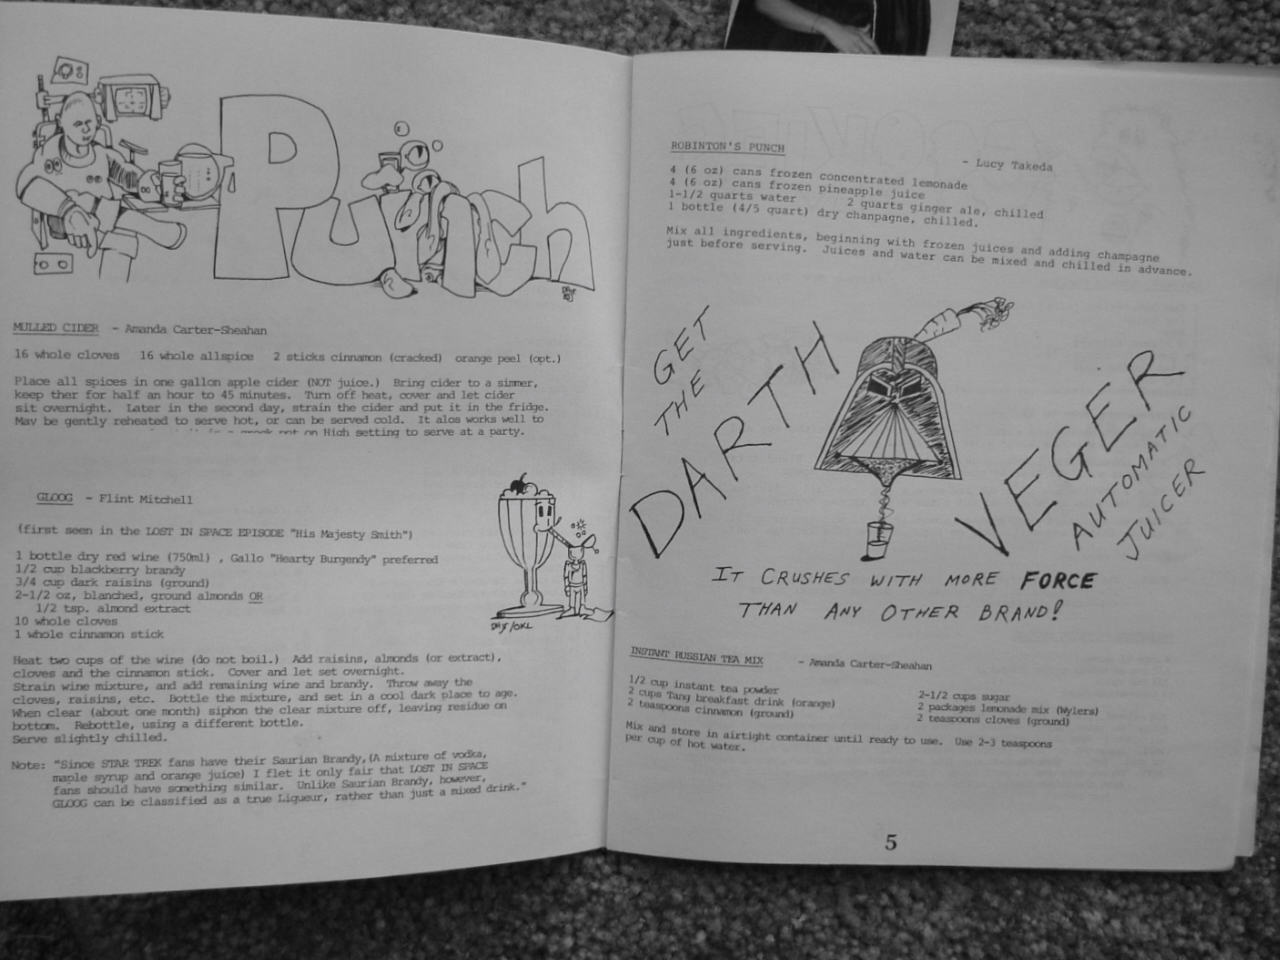 Punch
MULLED CIDER - Amanda Carter-Sheahan
16 whole cloves 16 whole allspice 2 sticks cinnamon (cracked) orange peel (opt.)
Place all spices in one gallon apple cider (NOT juice.) Bring cider to a simmer,
keep ther for half an hour to 45 minutes. Turn off heat, cover and let cider
sit overnight. Later in the second day, strain the cider and put it in the fridge.
May be gently reheated to serve hot, or can be served cold. It alos works well to
on High setting to serve at a party.
GLOOG - Flint Mitchell
(first seen in the LOST IN SPACE EPISODE "His Majesty Smith")
1 bottle dry red wine (750ml) , Gallo "Hearty Burgendy" preferred
1/2 cup blackberry brandy
3/4 cup dark raisins (ground)
2-1/2 oz, blanched, ground almonds OR
1/2 tsp. almond extract
10 whole cloves
1 whole cinnamon stick
Heat two cups of the wine (do not boil.) Add raisins, almonds (or extract),
cloves and the cinnamon stick. Cover and let set overnight.
Strain wine mixture, and add remaining wine and brandy. Throw away the
cloves, raisins, etc. Bottle the mixture, and set in a cool dark place to age.
When clear (about one month) siphon the clear mixture off, leaving residue on
bottom. Rebottle, using a different bottle.
Serve slightly chilled.
Note: "Since STAR TREK fans have their Saurian Brandy,(A mixture of vodka,
maple syrup and orange juice) I flet it only fair that LOST IN SPACE
fans should have something similar. Unlike Saurian Brandy, however,
GLOOG can be classified as a true Liqueur, rather than just a mixed drink."
ROBINTON'S PUNCH - Lucy Takeda
4 (6 oz) cans frozen concentrated lemonade
4 (6 oz) cans frozen pineapple juice
1-1/2 quarts water 2 quarts ginger ale, chilled
1 bottle (4/5 quart) dry chanpagne, chilled.
Mix all ingredients, beginning with frozen juices and adding champagne
just before serving. Juices and water can be mixed and chilled in advance.
GET
THE
DARTH
VEGER
AUTOMATIC
JUICER
IT CRUSHES WITH MORE FORCE
THAN ANY OTHER BRAND!
INSTANT RUSSIAN TEA MIX - Amanda Carter-Sheahan
1/2 cup instant tea powder 2-1/2 cups sugar
2 cups Tang breakfast drink (orange) 2 packages lemonade mix (Wylers)
2 teaspoons cinnamon (ground) 2 teaspoons cloves (ground)
Mix and store in airtight container until ready to use. Use 2-3 teaspoons
per cup of hot water.
5